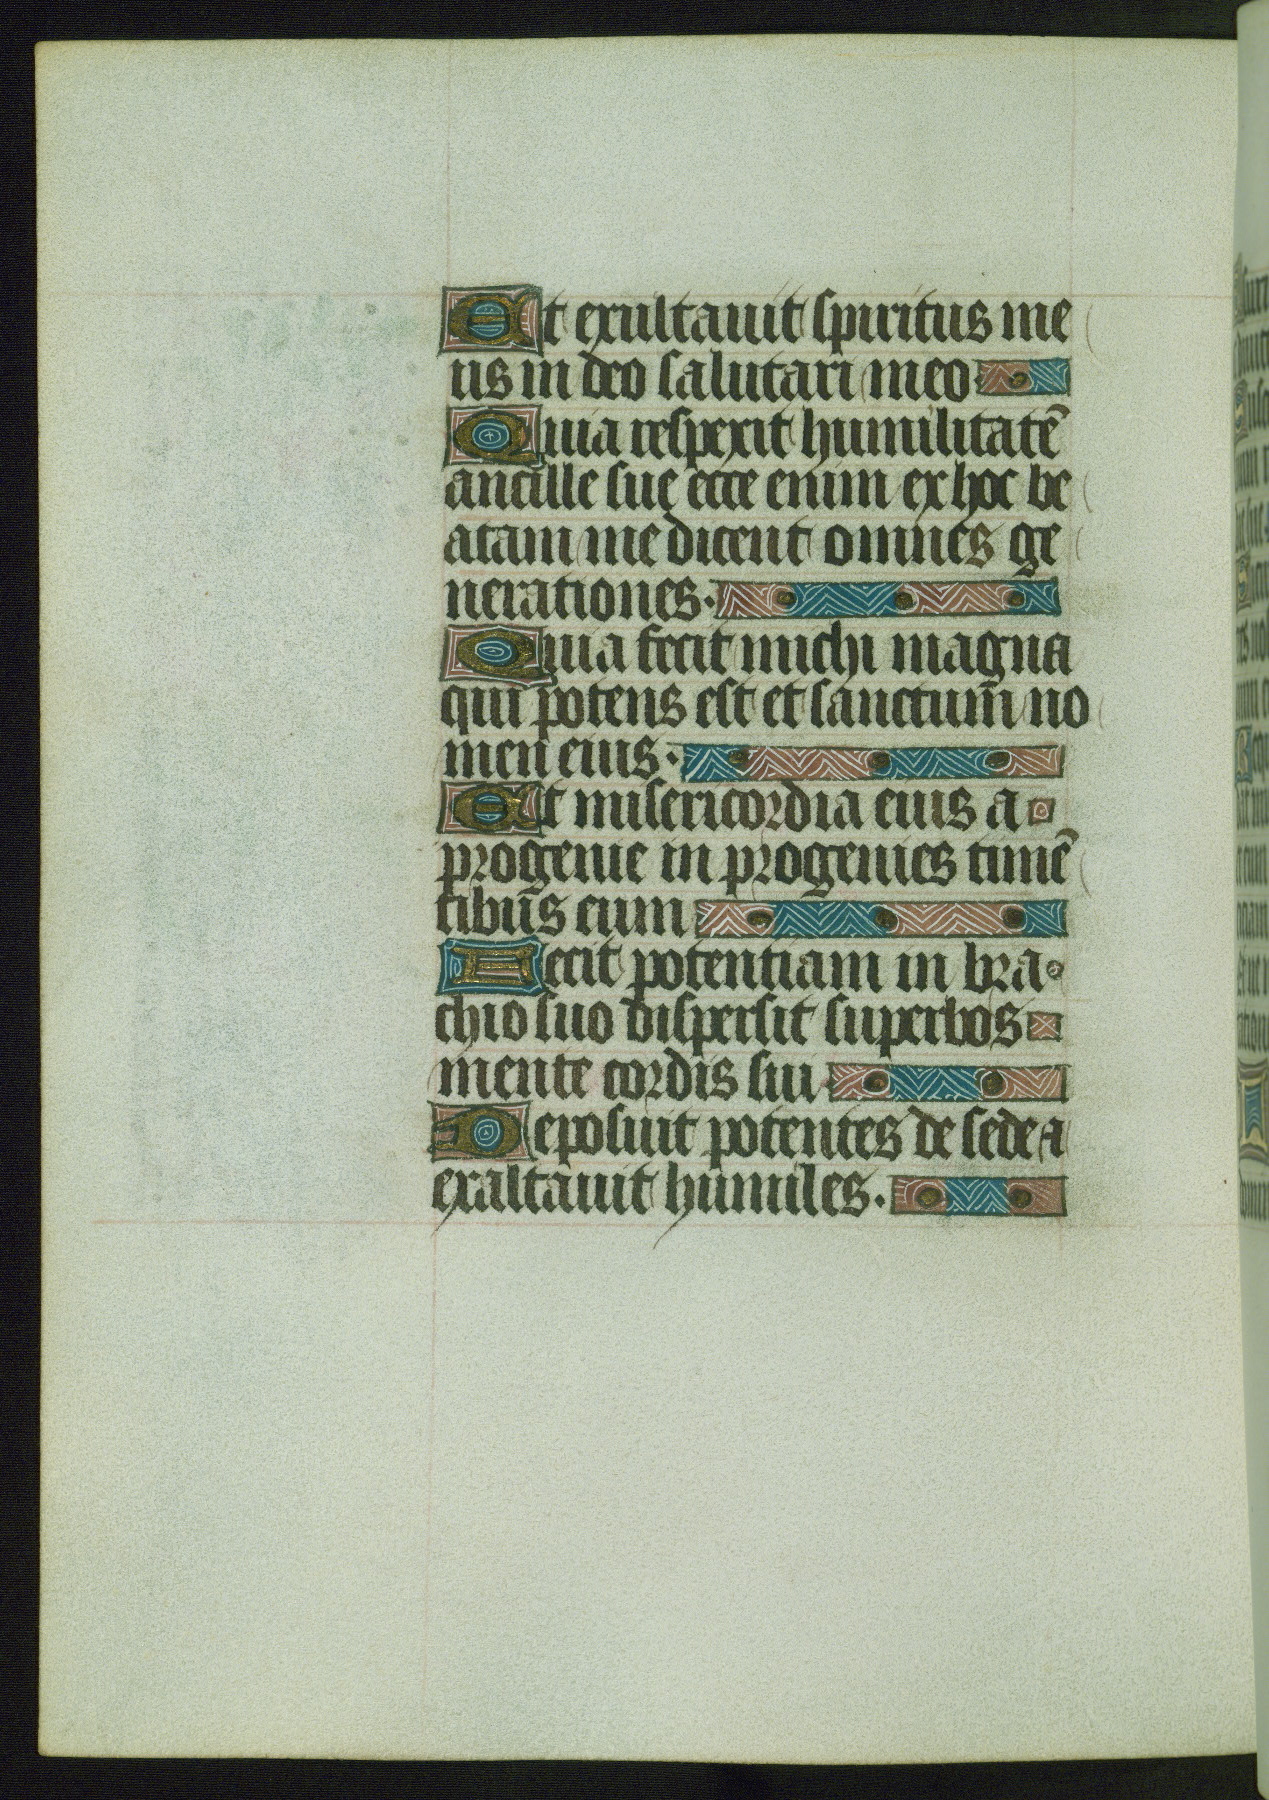 Et exultauit spiritus me
us in deo salutari meo
Quia respexit humilitatē
ancille sue ecce enim ex hoc be
atam me dicent omnes ge
nerationes.
Quia fecit michi magna
qui potens est et sanctum no
men eius.
Et misericordia eius a
progenie in progenies timē
tibus eum
Fecit potentiam in bra
chio suo dispersit superbos
mente cordis sui
Deposuit potentes de sede a
exaltauit humiles.